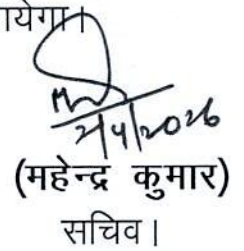 येगा।
2/4/2026
(महेन्द्र कुमार)
सचिव।